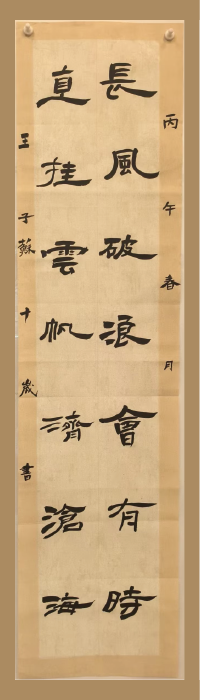 丙午春月
長風破浪會有時
直挂雲帆濟滄海
王子蘇十歲書